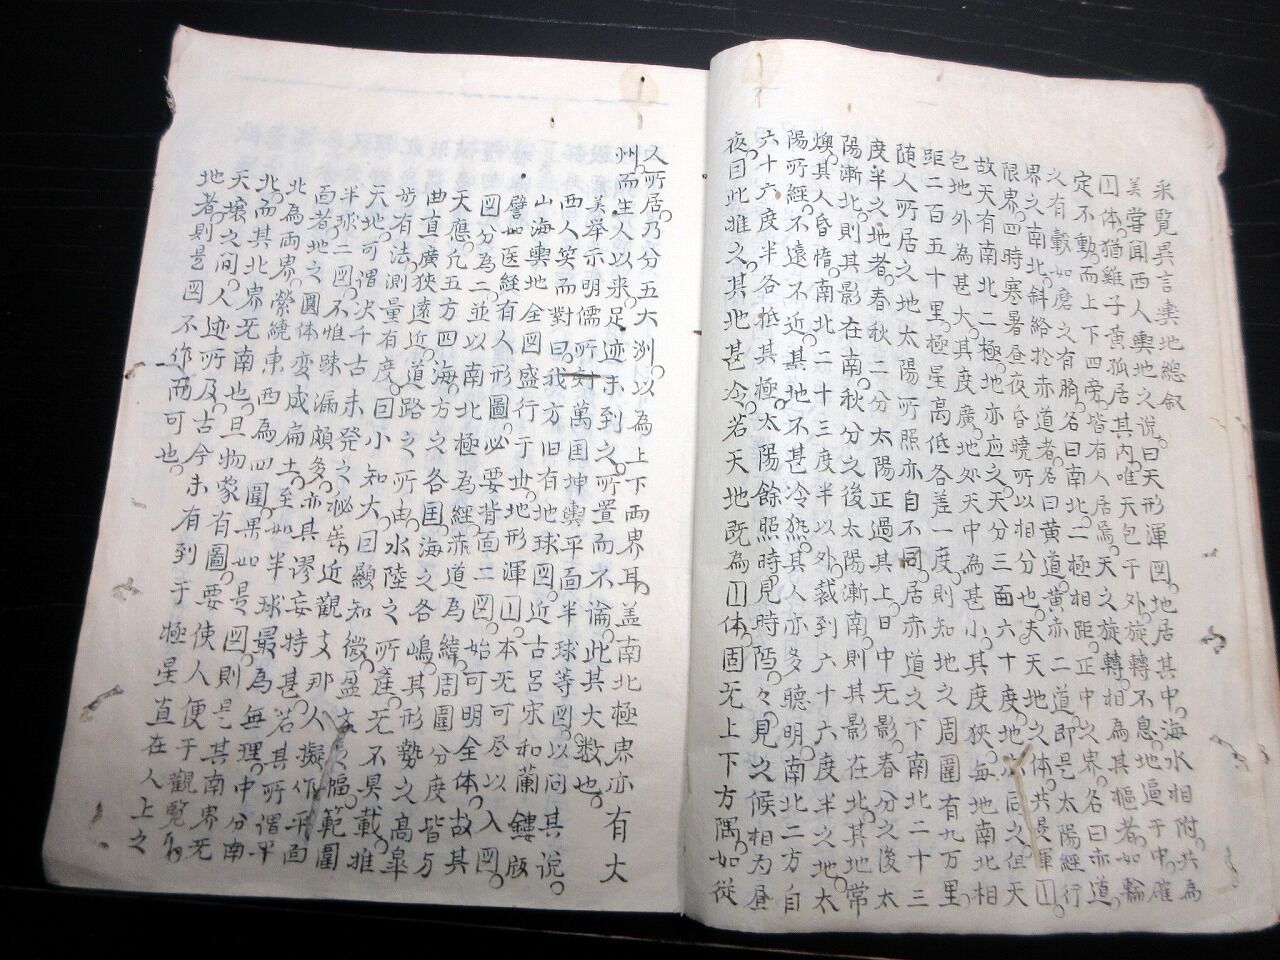 采覧異言輿地總叙
美嘗聞西人輿地之説曰天形渾圓地居其中海水相附共為
囗体猶雞子黄孤居其内唯天包于外旋轉不息地逼于中確
定不動而上下四旁皆有人居焉天之旋轉相為其樞者如輪
之有轂如磨之有臍名曰南北二極相距正中之界名曰赤道
界之南北斜絡於赤道者名曰黄道黄赤二道即是太陽經行
限界四時寒暑昼夜昏曉所以相分也夫天地之体共是渾囗
故天有南北二極地亦应之天分三百六十度地亦同之但天
包地外為甚大其度廣地処天中為甚小其度狹每地南北相
距二百五十里極星高低各差一度則知地之周圍有九万里
随人所居之地太陽所照亦自不同居赤道之下南北二十三
度半之地者春秋二分太陽正過其上日中无影春分之後太
陽漸北則其影在南秋分之後太陽漸南則其影在北其地常
燠其人昏惰南北二十三度半以外裁到六十六度半之地太
陽所經不遠不近其地不甚冷熱其人亦多聰明南北二方自
六十六度半各抵其極太陽餘照時見時隱々見之候相为昼
夜因此推之其地甚冷若天地既為囗体固无上下方隅如從
人所居乃分五大洲以為上下両界耳蓋南北極界亦有大
州而生人以来足迹未到之所置而不論此其大数也
美举示明儒所刻萬囯坤輿平面半球等圖以问其説
西人笑而對曰我方旧有地球圖近古呂宋和蘭鏤版
山海輿地全圖盛行于世地形渾囗本无可尽以入圖
譬如医経有人形圖必要背面二圖始可明全体故其
圖分為二並以南北極為經赤道為緯周圍分度皆与
天應凢五方四海方之各囯海之各嶋其形勢之高阜
曲直廣狹遠近道路之所由水陸之所產无不具載推
步有法測量有度囙小知大囙顯知微盈
天地可謂尖千古未発之秘近觀艾那人擬作平面
半球二圖不惟踈漏頗多亦其謬妄特甚若其所謂平
面者地之圓体变成扁土至如半球最為無理中分南
北為両界縈繞東西為四圍果如是圖則是其南界无
北而其北界无南也旦物象有圖要使人便于觀覧
天壤之间人迹所及古今未有到于極星直在人上之
地者則是圖不作而可也